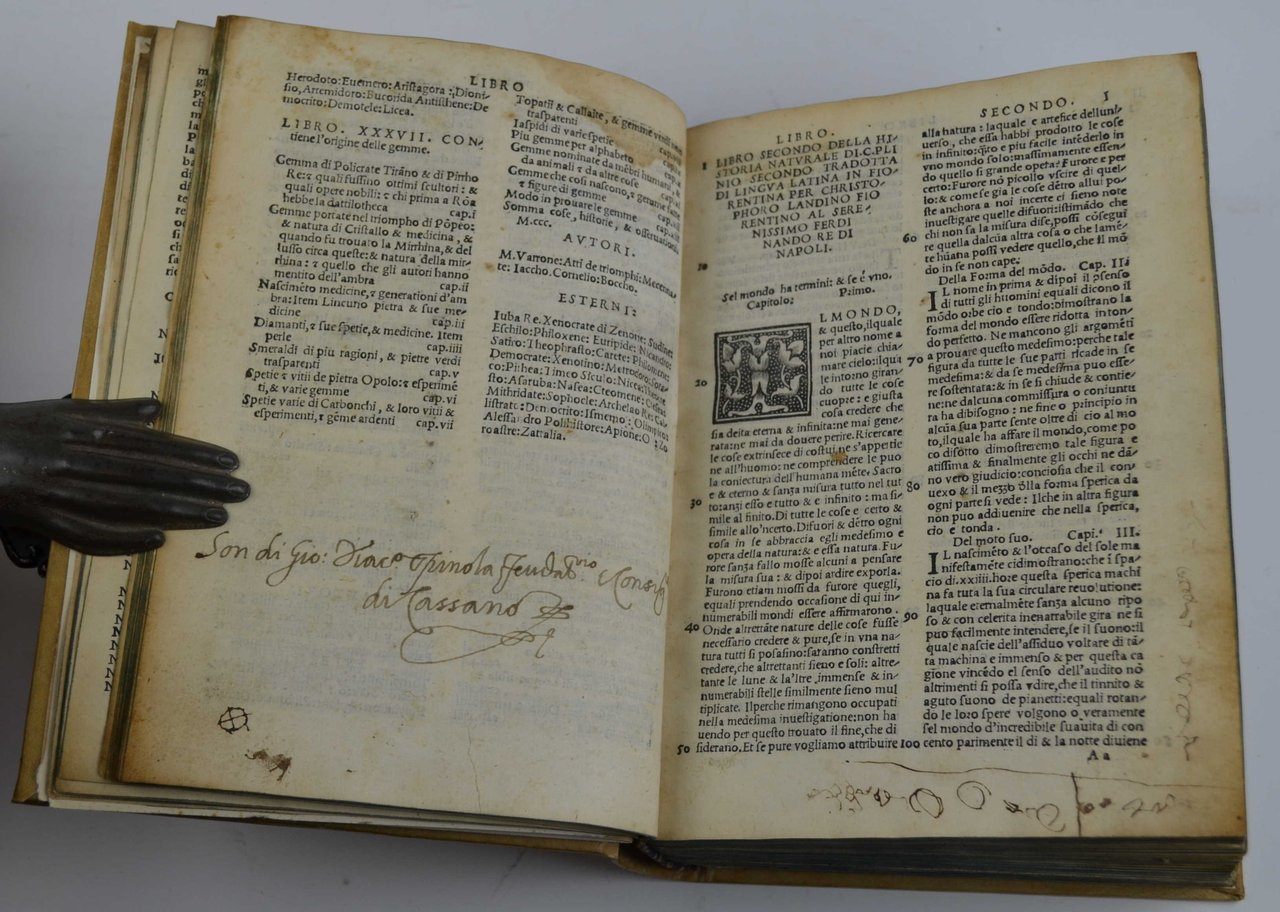 LIBRO
Herodoto: Euemero: Aristagora: Dioni-
sio, Artemidoro: Butorida Antisthene: De
mocrito: Demotele: Licea.
LIBRO. XXXVII. CON-
tiene l'origine delle gemme.
Gemma di Policrate Tirãno & di Pirrho
Re: ⁊ quali fussino ottimi scultori: &
quali opere nobili: ⁊ chi prima a Rõa
hebbe la dattilotheca cap.i
Gemme portate nel triompho di Põpeo:
& natura di Cristallo & medicina, &
quando fu trouato la Mirrhina, & del
lusso circa queste: & natura della mir-
rhina: ⁊ quello che gli autori hanno
mentito dell'ambra cap.ii
Nascimẽto medicine, ⁊ generationi d'am
bra: Item Lincurio pietra & sue me-
dicine cap.iii
Diamanti, ⁊ sue spetie, & medicine. Item
perle cap.iiii
Smeraldi di piu ragioni, & pietre verdi
trasparenti cap.v
Spetie ⁊ vitii de pietra Opolo: ⁊ esperimẽ
ti, & varie gemme cap.vi
Spetie varie di Carbonchi, & loro vitii &
esperimenti, ⁊ gẽme ardenti cap.vii
Topatii & Callaite, & gemme verdi
trasparenti
Iaspidi di varie spetie
Piu gemme per alphabeto
Gemme nominate da mẽbri humani, &
da animali ⁊ da altre cose
Gemme che cosi nascono, ⁊
⁊ figure di gemme
Modo in prouare le gemme
Somma cose, historie, & osseruationi,
M.ccc.
AVTORI.
M. Varrone: Atti de triomphi: Mecena-
te: Iaccho. Cornelio: Boccho.
ESTERNI:
Iuba Re. Xenocrate di Zenone: Sudines
Eschilo: Philoxene: Euripide: Nicandro:
Satiro: Theophrasto: Carete: Philomene:
Democrate: Xenotino: Metrodoro:
co: Pithea: Timeo Siculo: Nicea: Theocre
sto: Asaruba: Nasea: Cteomene:
Mithridate: Sophocle: Archelao Re: Cal-
listrato: Democrito: Ismenio: Olimpico:
Alessandro Polihistore: Apione: O: Zo
roastre: Zattalia.
Son di Gio: Diacº Spinola feudatrio e Consigr
di Cassano
SECONDO. I
LIBRO.
I LIBRO SECONDO DELLA HI-
STORIA NATVRALE DI.C.PLI
NIO SECONDO TRADOTTA
DI LINGVA LATINA IN FIO-
RENTINA PER CHRISTO-
PHORO LANDINO FIO
RENTINO AL SERE-
NISSIMO FERDI
NANDO RE DI
NAPOLI.
10
Sel mondo ha termini: & se é vno.
Capitolo: Primo.
L MONDO,
& questo, il quale
per altro nome a
noi piacie chia-
mare cielo: il qua
20 le intorno giran-
do tutte le cose
cuopre: e giusta
cosa credere che
sia deita eterna & infinita: ne mai gene-
rata: ne mai da douere perire. Ricercare
le cose extrinsece di costui, ne s'appetie
ne all'huomo: ne comprendere le puo
la coniectura dell'humana mẽte. Sacro
e & eterno & sanza misura tutto nel tut
30 to: anzi esso e tutto & e infinito: ma si-
mile al finito. Di tutte le cose e certo &
simile allo'ncerto. Difuori & dẽtro ogni
cosa in se abbraccia egli medesimo e
opera della natura: & e essa natura. Fu-
rore sanza fallo mosse alcuni a pensare
la misura sua: & dipoi ardire exporla.
Furono etiam mossi da furore quegli,
equali prendendo occasione di qui in-
numerabili mondi essere affirmarono.
40 Onde altretãte nature delle cose fusse
necessario credere & pure, se in vna na-
tura tutti si posasino: saranno constretti
credere, che altrettanti sieno e soli: altre-
tante le lune & la'ltre, immense & in-
numerabili stelle similmente sieno mul
tiplicate. Ilperche rimangono occupati
nella medesima inuestigatione: non ha
uendo per questo trouato il fine, che di
50 siderano. Et se pure vogliamo attribuire
alla natura: laquale e artefice dell'uni-
uerso, che essa habbi prodotto le cose
in infinito: q̃sto e piu facile intẽderlo in
vno mondo solo: massimamente essen-
do quello si grande opera: Furore e per
certo: Furore nõ picolo vscire di quel-
lo: & come se gia le cose dẽtro allui po-
ste anchora a noi incerte ci sieno note
inuestigare quelle difuori: issimãdo che
chi non sa la misura di se, possi cõsegui
60 re quella dalcũa altra cosa o che lamẽ-
te hũana possi vedere quello, che il mõ
do in se non cape.
Della Forma del mõdo. Cap. II:
IL nome in prima & dipoi il cõsenso
di tutti gli huomini equali dicono il
mõdo orbe cio e tondo: dimostrano la
forma del mondo essere ridotta in ton-
do perfetto. Ne mancono gli argomẽti
a prouare questo medesimo: perche tale
70 figura da tutte le sue parti ricade in se
medesima: & da se medesima puo esse-
re sostentata: & in se si chiude & contie-
ne: ne dalcuna commissura o coniuntu
ra ha dibisogno: ne fine o principio in
alcũa sua parte sente oltre di cio al mo
to, ilquale ha affare il mondo, come po
co disotto dimosteremo tale figura e
atissima & finalmente gli occhi ne dã-
no vero giudicio: conciosia che il con
80 uexo & il mezzo õlla forma sperica da
ogni parte si vede: Ilche in altra figura
non puo adduienire che nella sperica,
cio e tonda.
Del moto suo. Capi. III.
IL nascimẽto & l'occaso del sole ma
nifestamẽte ci dimostrano: che ĩ spa-
cio di.xxiiii. hore questa sperica machĩ
na fa tuta la sua circulare reuolutione:
laquale eternalmẽte sanza alcuno ripo
90 so & con celerita inenarrabile gira ne si
puo facilmente intendere, se il suono: il
quale nascie dell'assiduo voltare di tã-
ta machina e immenso & per questa ca
gione vincẽdo el senso dell'audito nõ
altrimenti si possa vdire, che il tinnito &
aguto suono de pianetti: equali rotan-
do le loro spere volgono o veramente
sel mondo d'incredibile suauita di con
100 cento parimente il di & la notte diuiene
A a